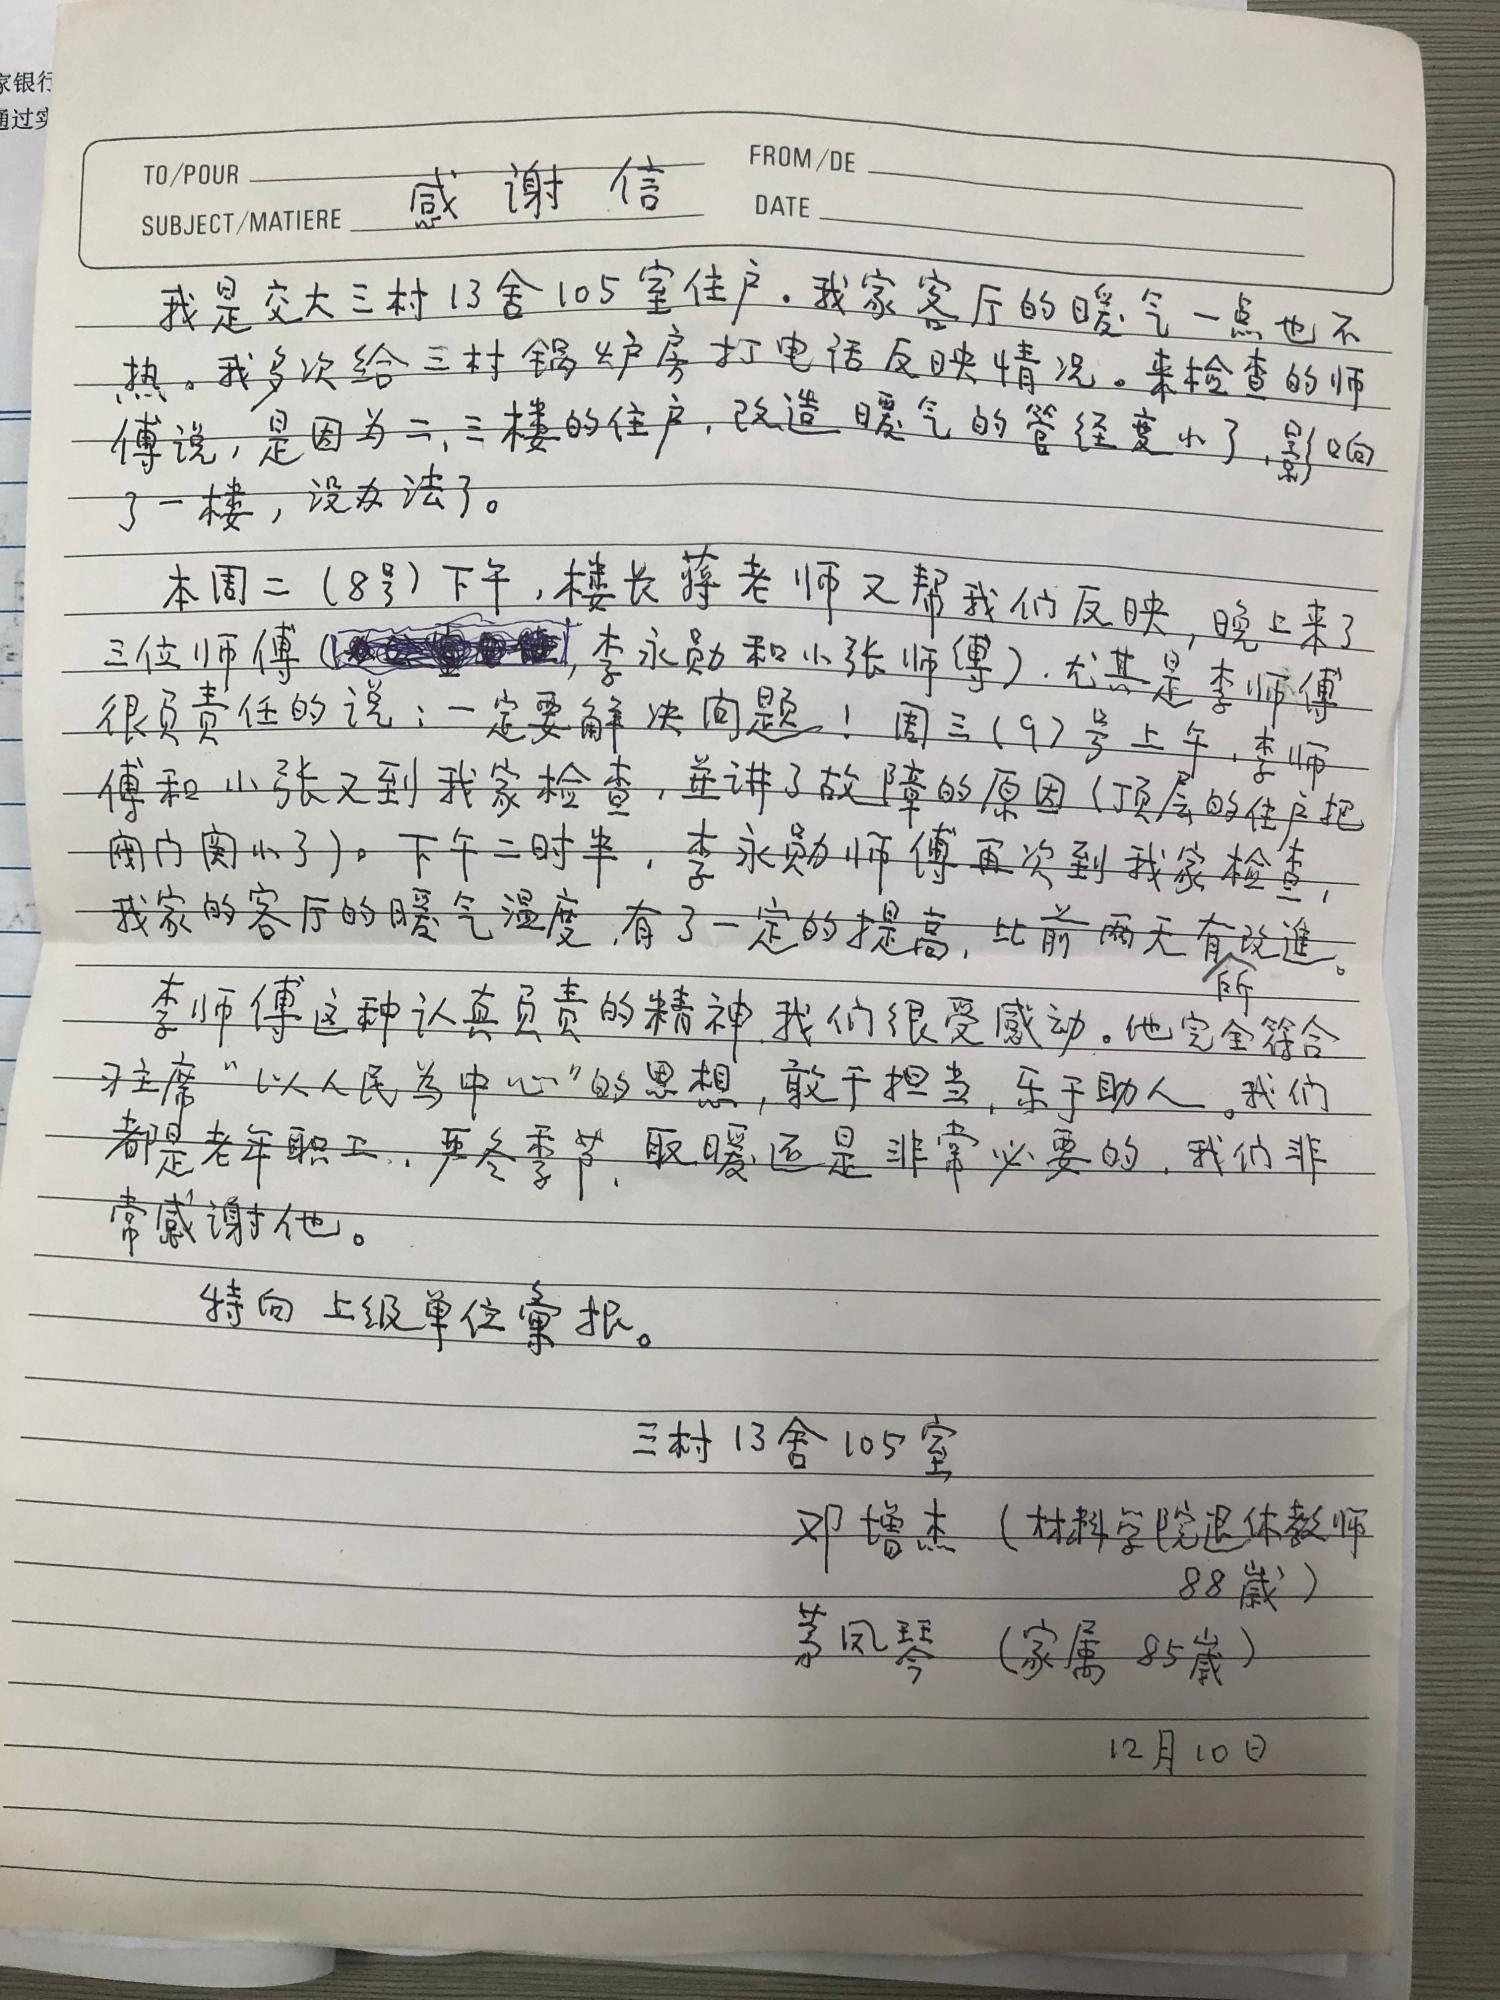 家银行
通过实
TO/POUR
FROM/DE
SUBJECT/MATIERE 感谢信
DATE
我是交大三村13舍105室住户。我家客厅的暖气一点也不
热。我多次给三村锅炉房打电话反映情况。来检查的师
傅说,是因为二、三楼的住户,改造暖气的管径变小了,影响
了一楼,没办法了。
本周二(8号)下午,楼长蒋老师又帮我们反映,晚上来了
三位师傅(,李永勋和小张师傅),尤其是李师傅
很负责任的说:一定要解决问题!周三(9)号上午,李师
傅和小张又到我家检查,並讲了故障的原因(顶层的住户把
阀门関小了)。下午二时半,李永勋师傅再次到我家检查,
我家的客厅的暖气温度,有了一定的提高,比前两天有所改進。
李师傅这种认真负责的精神,我们很受感动。他完全符合
习主席"以人民为中心"的思想,敢于担当,乐于助人。我们
都是老年职工,严冬季节,取暖还是非常必要的,我们非
常感谢他。
特向上级单位彙报。
三村13舍105室
邓增杰(材料学院退休教师
88歲)
茅凤琴(家属 85歲)
12月10日